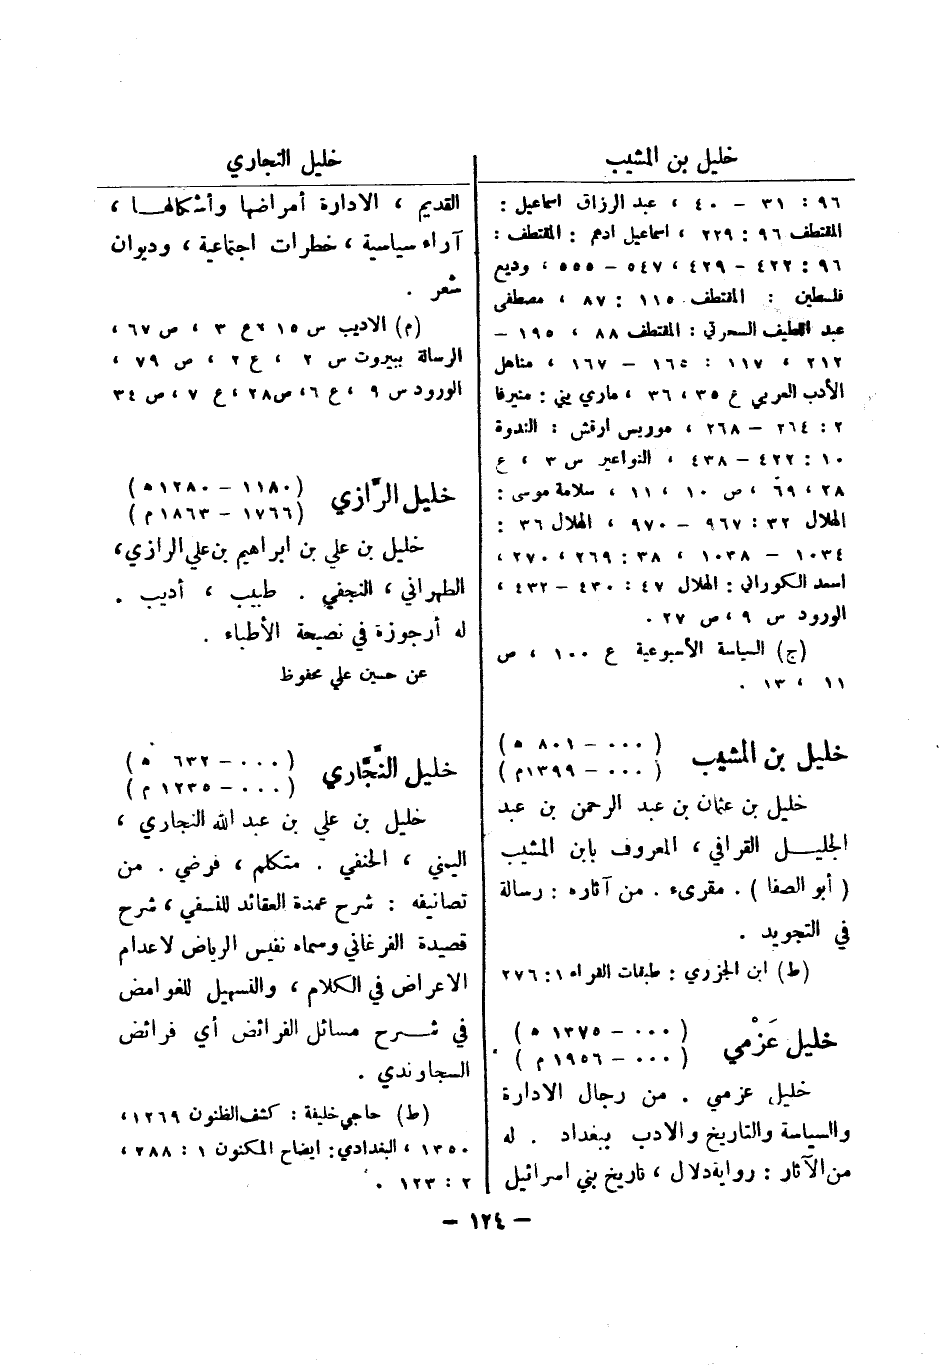 خليل بن المشيب
٩٦ : ٣١ – ٤٠ ، عبد الرزاق اسماعيل :
المقتطف ٩٦ : ٢٢٩ ، اسماعيل ادهم : المقتطف :
٩٦ : ٤٢٢ – ٤٢٩ ، ٥٤٧ – ٥٥٥ ، وديع
فلسطين : المقتطف ١١٥ : ٨٧ ، مصطفى
عبد اللطيف السحرتي : المقتطف ٨٨ ، ١٩٥ –
٢١٢ ، ١١٧ : ١٦٥ – ١٦٧ ، مناهل
الأدب العربي ع ٣٥ ، ٣٦ ، ماري يني : منيرفا
٢ : ٢٦٤ – ٢٦٨ ، موريس ارقش : الندوة
١٠ : ٤٢٢ – ٤٣٨ ، النواعير س ٣ ، ع
٢٨ ، ٦٩ ، ص ١٠ ، ١١ ، سلامة موسى :
الهلال ٣٢ : ٩٦٧ – ٩٧٠ ، الهلال ٣٦ :
١٠٣٤ – ١٠٣٨ ، ٣٨ : ٢٦٩ ، ٢٧٠ ،
اسعد الكوراني : الهلال ٤٧ : ٤٣٠ – ٤٣٢ ،
الورود س ٩ ، ص ٢٧ .
(ج) السياسة الأسبوعية ع ١٠٠ ، ص
١١ ، ١٣ .
خليل بن المشيب (٠٠٠ – ٨٠١ ه)
(٠٠٠ – ١٣٩٩ م)
خليل بن عثمان بن عبد الرحمن بن عبد
الجليل القرافي ، المعروف بابن المشيب
( أبو الصفا ) . مقرىء . من آثاره : رسالة
في التجويد .
(ط) ابن الجزري : طبقات القراء ١ : ٢٧٦
خليل عَزْمي (٠٠٠ – ١٣٧٥ ه)
(٠٠٠ – ١٩٥٦ م)
خليل عزمي . من رجال الادارة
والسياسة والتاريخ والادب ببغداد . له
من الآثار : رواية دلال ، تاريخ بني اسرائيل
خليل النجاري
القديم ، الادارة أمراضها وأشكالها ،
آراء سياسية ، خطرات اجتماعية ، وديوان
شعر .
(م) الاديب س ١٥ ع ٣ ، ص ٦٧ ،
الرسالة ببيروت س ٢ ، ع ٢ ، ص ٧٩ ،
الورود س ٩ ، ع ٦ ، ص ٢٨ ، ع ٧ ، ص ٣٤
خليل الرَّازي (١١٨٠ – ١٢٨٠ ه)
(١٧٦٦ – ١٨٦٣ م)
خليل بن علي بن ابراهيم بن علي الرازي ،
الطهراني ، النجفي . طبيب ، أديب .
له أرجوزة في نصيحة الأطباء .
عن حسين علي محفوظ
خليل النجَّاري (٠٠٠ – ٦٣٢ ه)
(٠٠٠ – ١٢٣٥ م)
خليل بن علي بن عبد الله النجاري ،
اليمني ، الحنفي . متكلم ، فرضي . من
تصانيفه : شرح عمدة العقائد للنسفي ، شرح
قصيدة الفرغاني وسماه نفيس الرياض لاعدام
الاعراض في الكلام ، والتسهيل للغوامض
في شرح مسائل الفرائض أي فرائض
السجاوندي .
(ط) حاجي خليفة : كشف الظنون ١٢٦٩ ،
١٣٥٠ ، البغدادي : ايضاح المكنون ١ : ٢٨٨ ،
٢ : ١٢٣ .
– ١٢٤ –